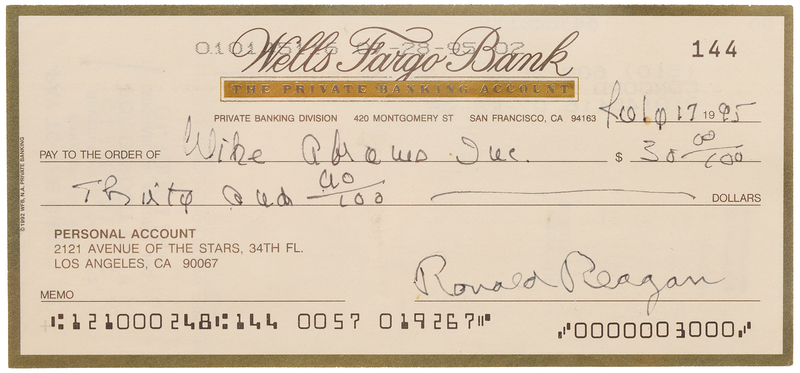 Wells Fargo Bank
144
THE PRIVATE BANKING ACCOUNT
PRIVATE BANKING DIVISION 420 MONTGOMERY ST SAN FRANCISCO, CA 94163
July 17 1995
PAY TO THE ORDER OF Mike Abrams Inc. $ 30 00/100
Thirty and 00/100 DOLLARS
©1992 WFB, N.A. PRIVATE BANKING
PERSONAL ACCOUNT
2121 AVENUE OF THE STARS, 34TH FL.
LOS ANGELES, CA 90067
Ronald Reagan
MEMO
⑆121000248⑆144 0057 019267⑈ ⑈0000003000⑈